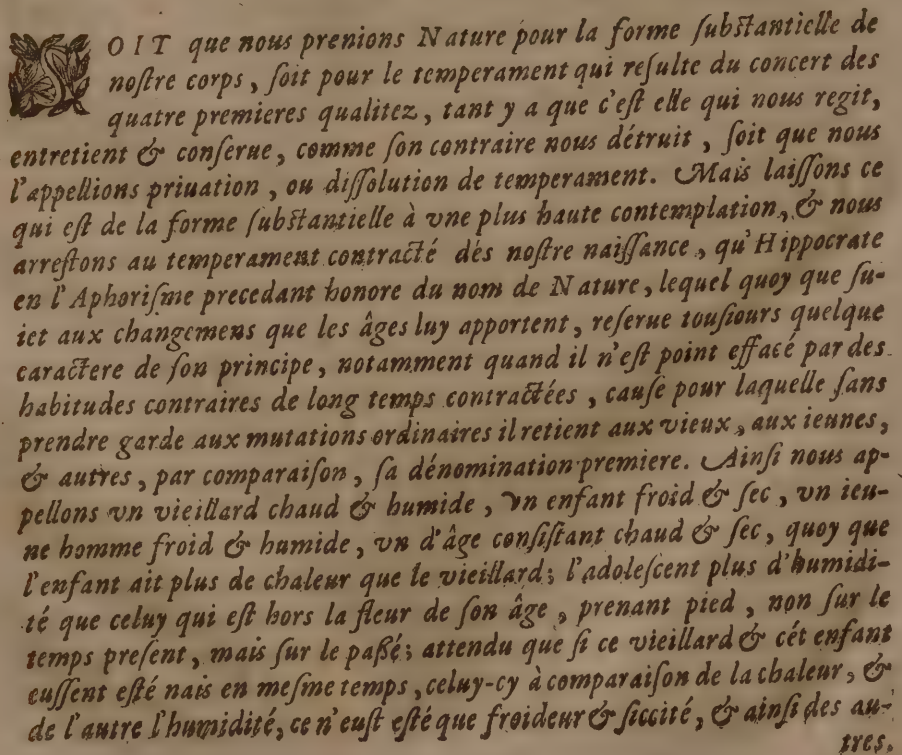 SOIT que nous prenions Nature pour la forme ſubſtantielle de
noſtre corps, ſoit pour le temperament qui reſulte du concert des
quatre premieres qualitez, tant y a que c'eſt elle qui nous regit,
entretient & conſerue, comme ſon contraire nous détruit, ſoit que nous
l'appellions priuation, ou diſſolution de temperament. Mais laiſſons ce
qui eſt de la forme ſubſtantielle à vne plus haute contemplation, & nous
arreſtons au temperament contracté dés noſtre naiſſance, qu'Hippocrate
en l'Aphoriſme precedant honore du nom de Nature, lequel quoy que ſu-
iet aux changemens que les âges luy apportent, reſerue touſiours quelque
caractere de ſon principe, notamment quand il n'eſt point effacé par des
habitudes contraires de long temps contractées, cauſe pour laquelle ſans
prendre garde aux mutations ordinaires il retient aux vieux, aux ieunes,
& autres, par comparaiſon, ſa dénomination premiere. Ainſi nous ap-
pellons vn vieillard chaud & humide, vn enfant froid & ſec, vn ieu-
ne homme froid & humide, vn d'âge conſiſtant chaud & ſec, quoy que
l'enfant ait plus de chaleur que le vieillard; l'adoleſcent plus d'humidi-
té que celuy qui eſt hors la fleur de ſon âge, prenant pied, non ſur le
temps preſent, mais ſur le paßé; attendu que ſi ce vieillard & cét enfant
euſſent eſté nais en meſme temps, celuy-cy à comparaiſon de la chaleur, &
de l'autre l'humidité, ce n'euſt eſté que froideur & ſiccité, & ainſi des au-
tres.